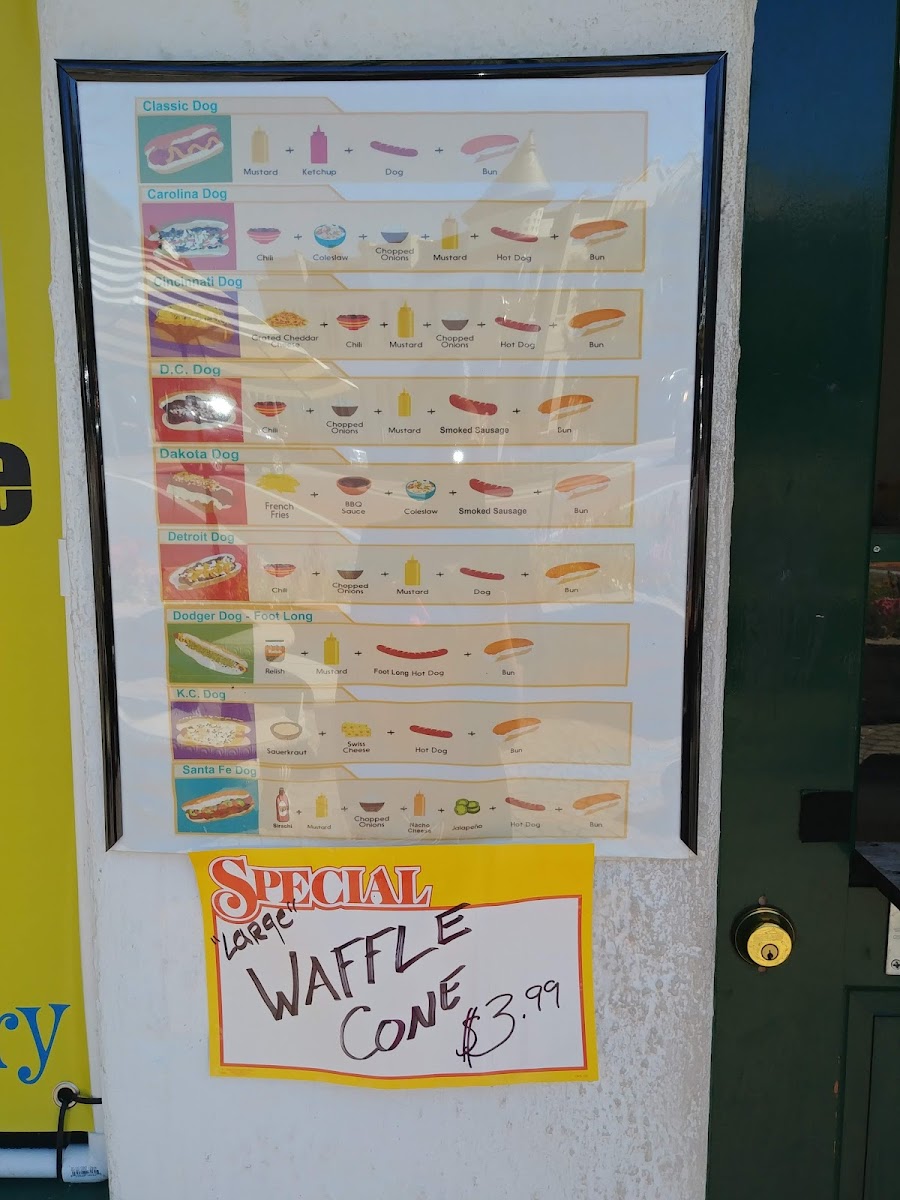 Classic Dog
Mustard + Ketchup + Dog + Bun
Carolina Dog
Chili + Coleslaw + Chopped Onions + Mustard + Hot Dog + Bun
Cincinnati Dog
Grated Cheddar Cheese + Chili + Mustard + Chopped Onions + Hot Dog + Bun
D.C. Dog
Chili + Chopped Onions + Mustard + Smoked Sausage + Bun
Dakota Dog
French Fries + BBQ Sauce + Coleslow + Smoked Sausage + Bun
Detroit Dog
Chili + Chopped Onions + Mustard + Dog + Bun
Dodger Dog - Foot Long
Relish + Mustard + Foot Long Hot Dog + Bun
K.C. Dog
Sauerkraut + Swiss Cheese + Hot Dog + Bun
Santa Fe Dog
+ Mustard + Chopped Onions + Nacho Cheese + Jalapeño + Hot Dog + Bun
SPECIAL
"LARGE"
WAFFLE
CONE
$3.99
e
ry